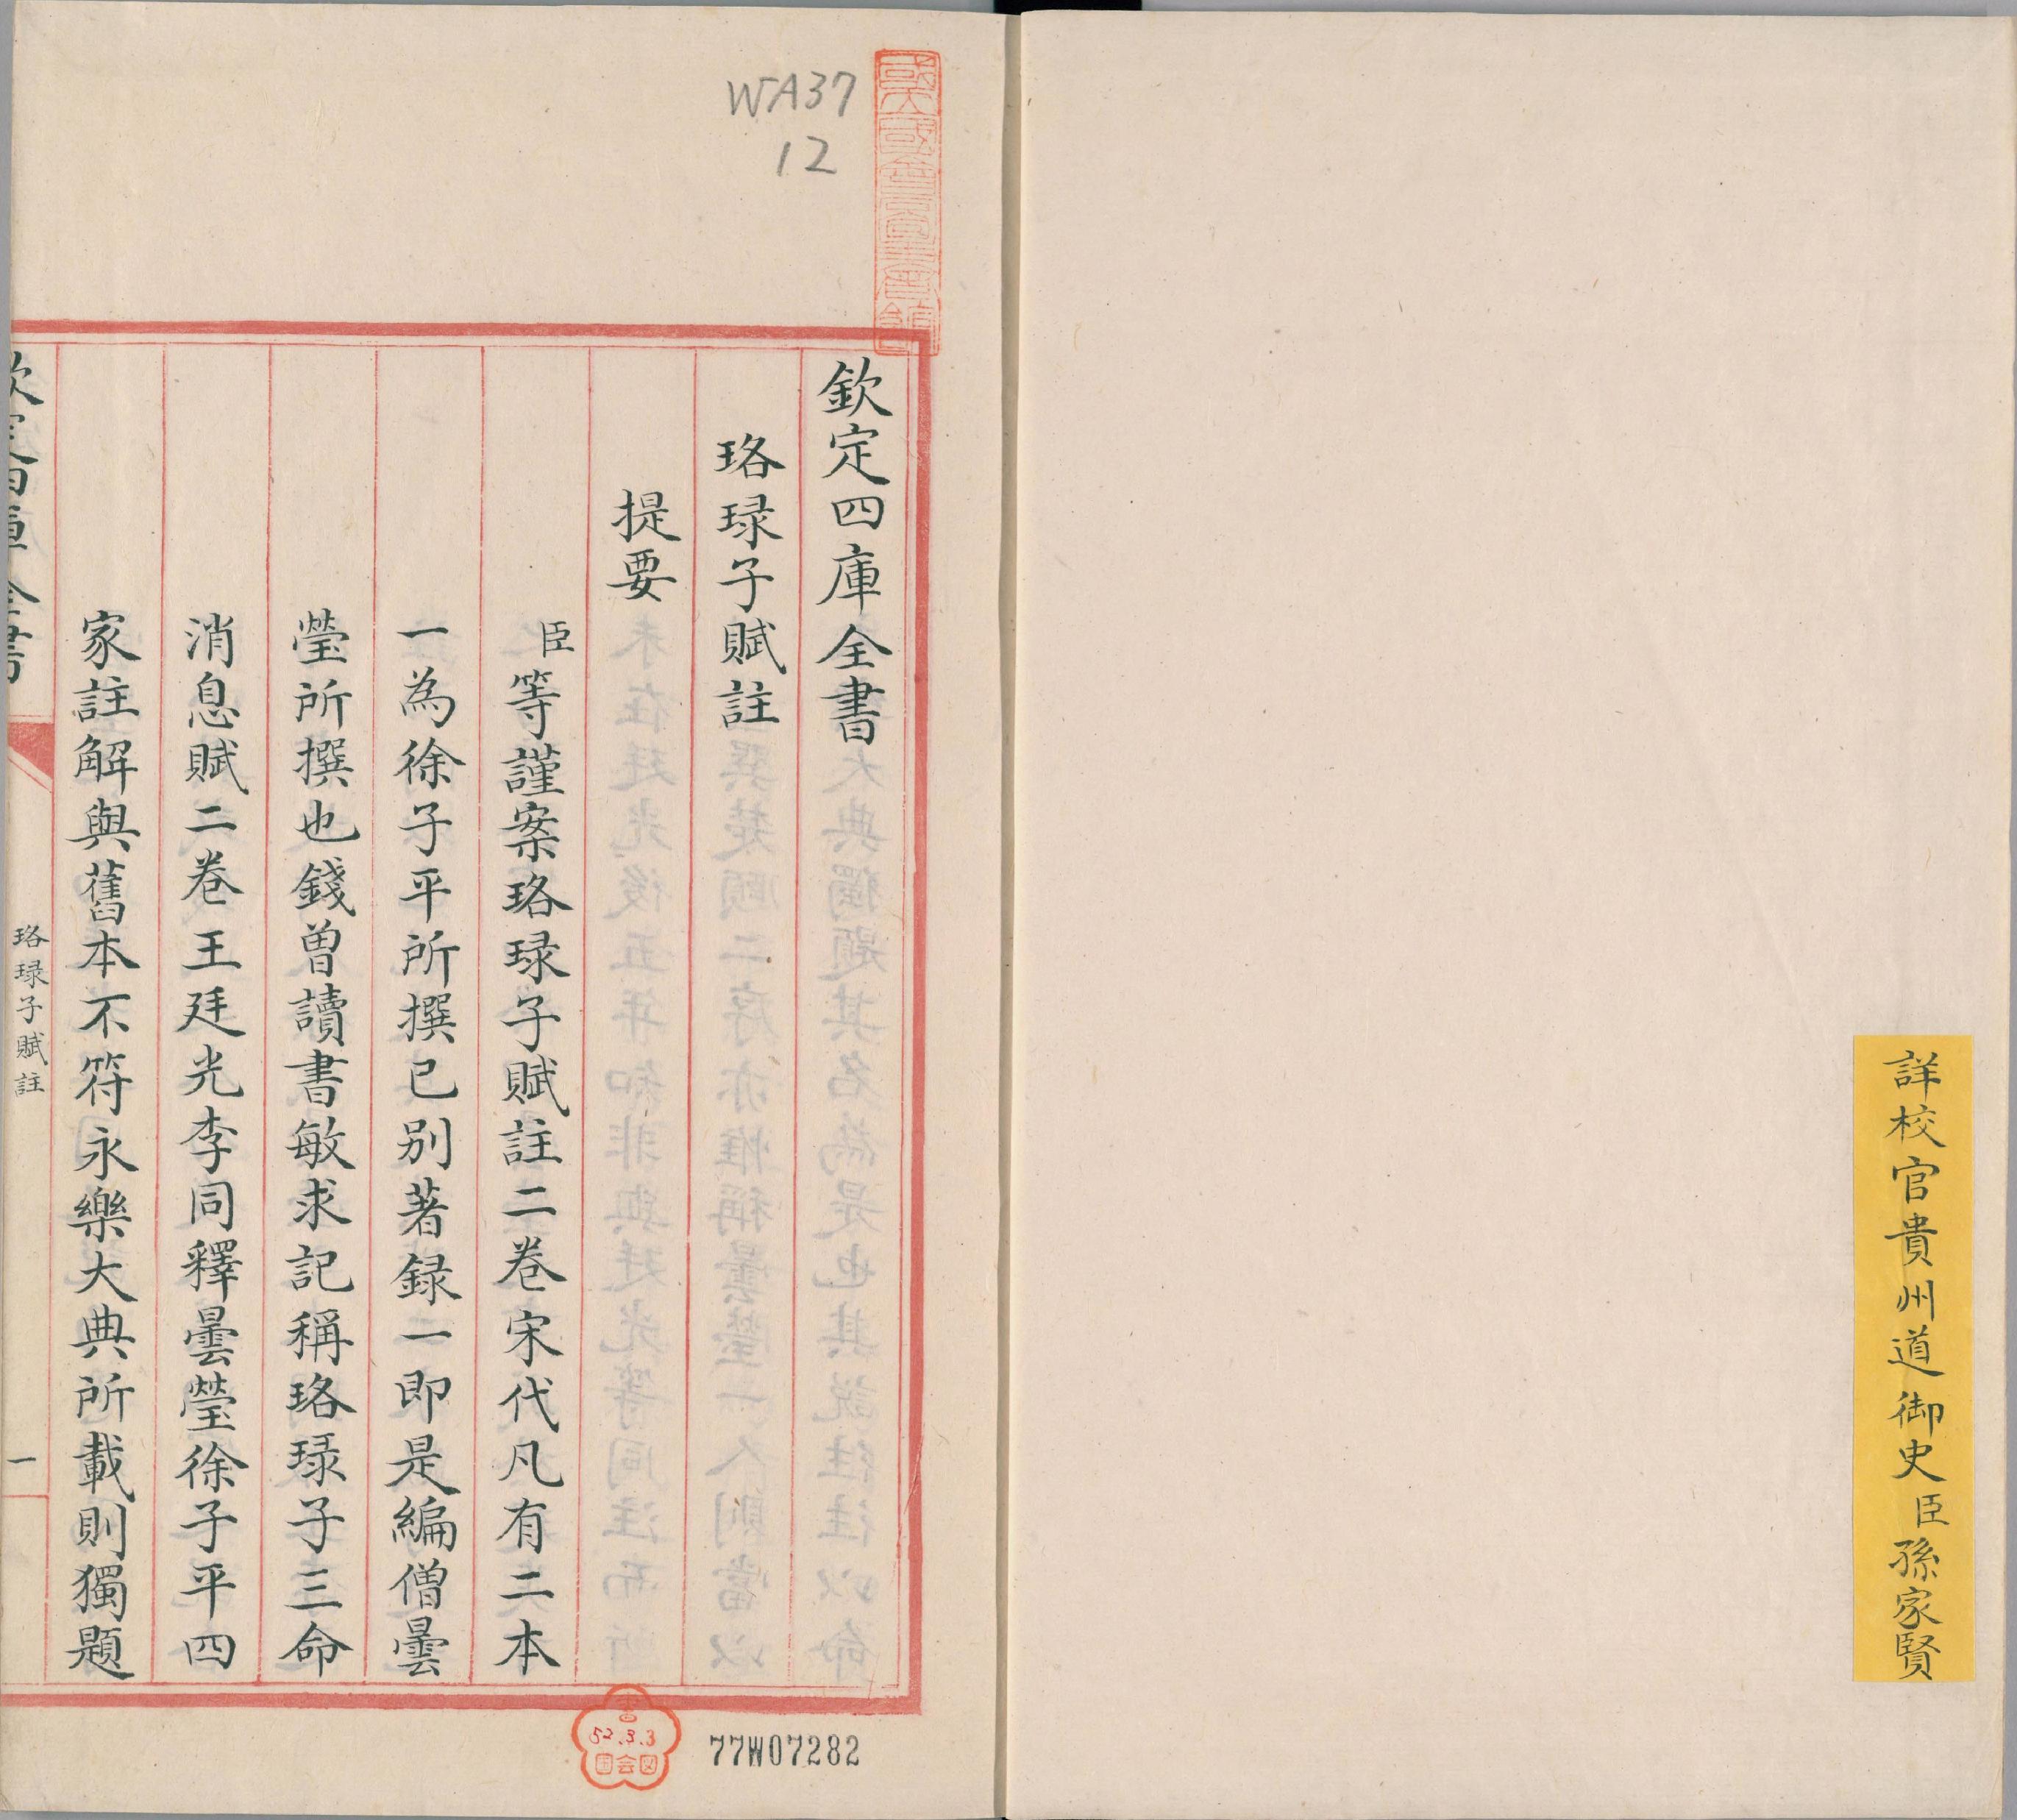 詳校官貴州道御史臣孫家賢
WA37
12
國立國會圖書館
欽定四庫全書
珞琭子賦註
提要
臣等謹案珞琭子賦註二卷宋代凡有二本
一為徐子平所撰已别著録一即是編僧曇
瑩所撰也錢曽讀書敏求記稱珞琭子三命
消息賦二卷王廷光李同釋曇瑩徐子平四
家註解與舊本不符永樂大典所載則獨題
欽定四庫全書
珞琭子賦註
一
52.3.3
77W07282